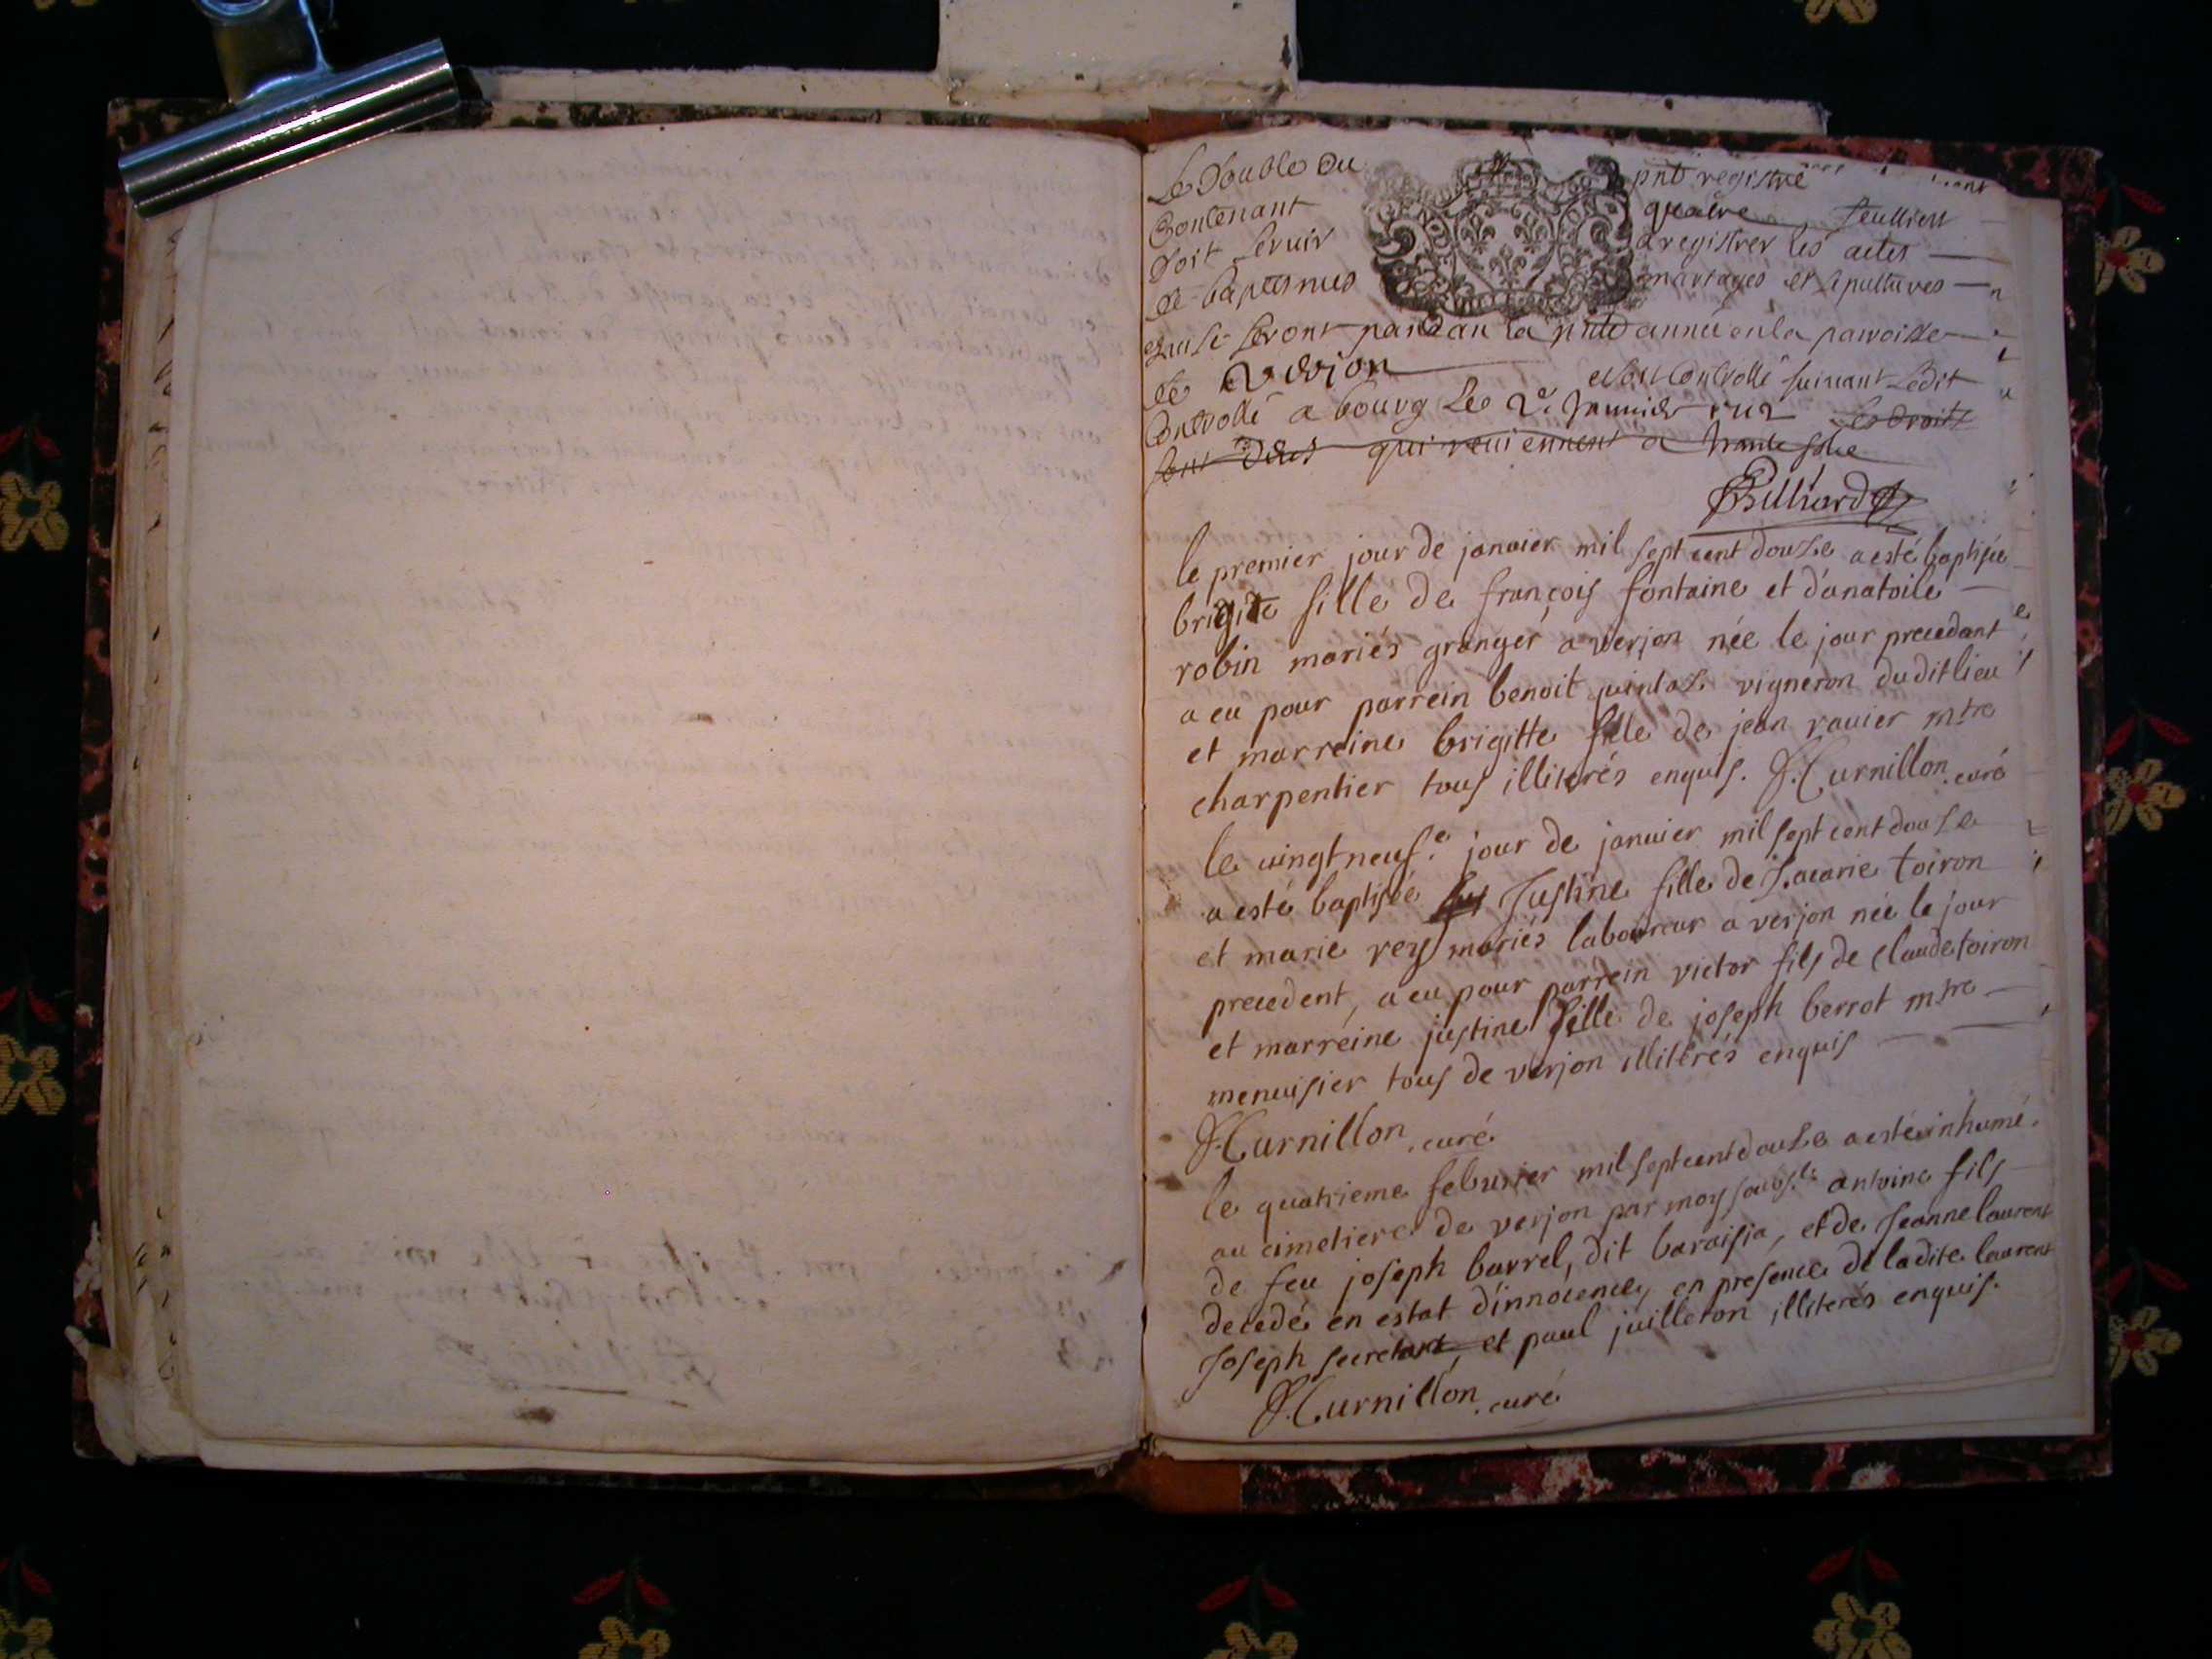 Le Double Du pnt registre
Contenant quatre feulliets
Doit servir a registrer les actes
de baptesmes mariages et sepultures
qui se feront pandan la pnte année en la parroisse
de Verjon
et sont controllé suivant Ledit
Controllé a bourg Le 2e Janvier 1712 les droits
sont deus qui reviennent a trante solz
Billiard
le premier jour de janvier mil sept cent douze a esté baptisée
brigitte fille de françois fontaine et d'anatoile
robin mariés granger a verjon née le jour precedant
a eu pour parrein benoit vigneron dudit lieu
et marreine brigitte fille de jean ravier mtre
charpentier tous illiterés enquis. J. Curnillon curé
le vingt neuf.e jour de janvier mil sept cent douze
a esté baptisée Justine fille de Zacarie toiron
et marie rey mariés laboureur a verjon née le jour
precedent, a eu pour parrein victor fils de claude toiron
et marreine justine fille de joseph berrot mtre
menuisier tous de verjon illiterés enquis
J. Curnillon curé
le quatrieme febvrier mil sept cent douze a esté inhumé
au cimetiere de verjon par moy soubs.é antoine fils
de feu joseph burrel, dit baraisia, et de Jeanne laurent
decedé en estat d'innocence, en presence de ladite laurent
Joseph secretant, et paul juilleron illiterés enquis.
J. Curnillon curé